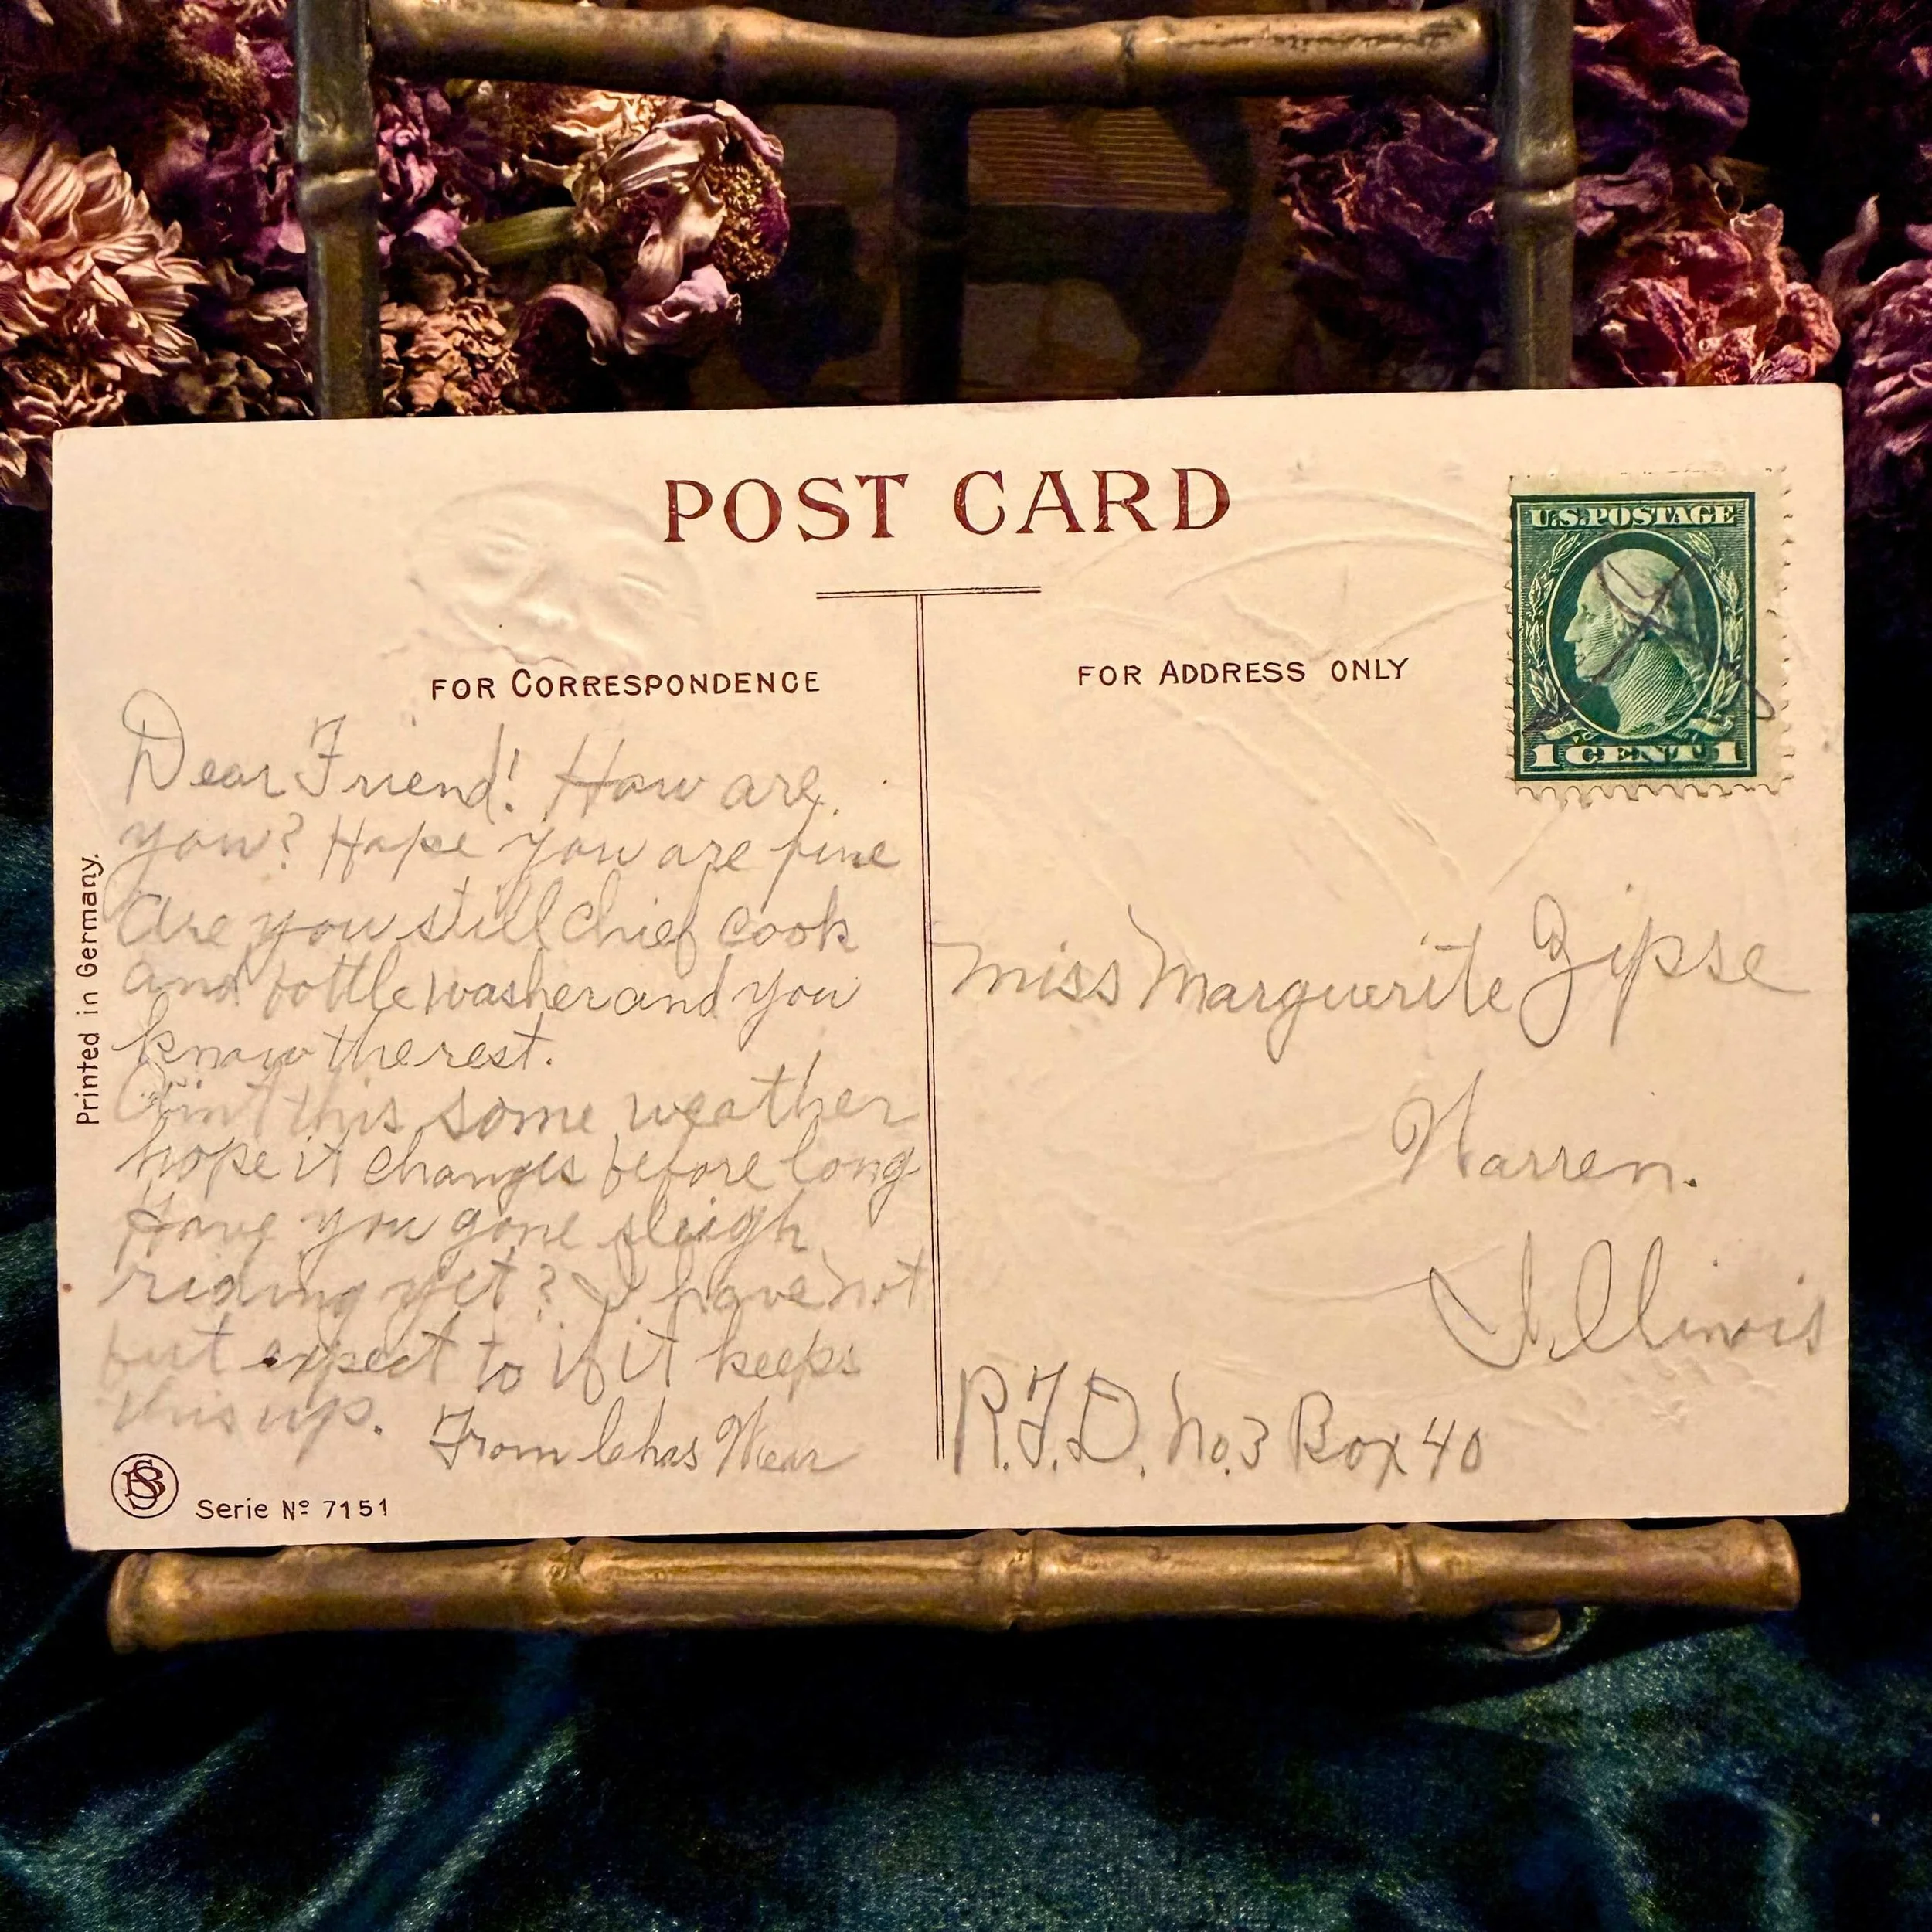 POST CARD
U.S. POSTAGE
1 CENT 1
FOR CORRESPONDENCE
FOR ADDRESS ONLY
Dear Friend! How are
you? Hope you are fine
Are you still chief cook
and bottle washer and you
know the rest.
Ain't this some weather
hope it changes before long
Have you gone sleigh
riding yet? I have not
but expect to if it keeps
this up.
From Chas Wear
Miss Marguerite Zipse
Warren.
Illinois
R.F.D. No. 3 Box 40
Printed in Germany.
BS
Serie Nº 7151